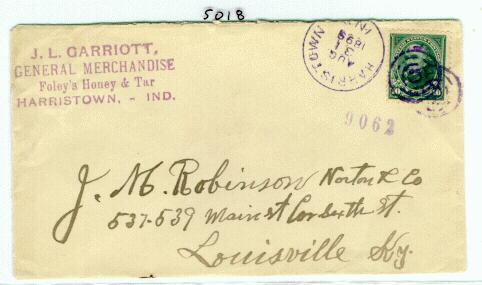 5018
J. L. GARRIOTT,
GENERAL MERCHANDISE
Foley's Honey & Tar
HARRISTOWN, - IND.
HARRISTOWN IND.
AUG
31
1899
9062
J. M. Robinson Norton & Co
537-539 Main st Cor Sixth St.
Louisville Ky.